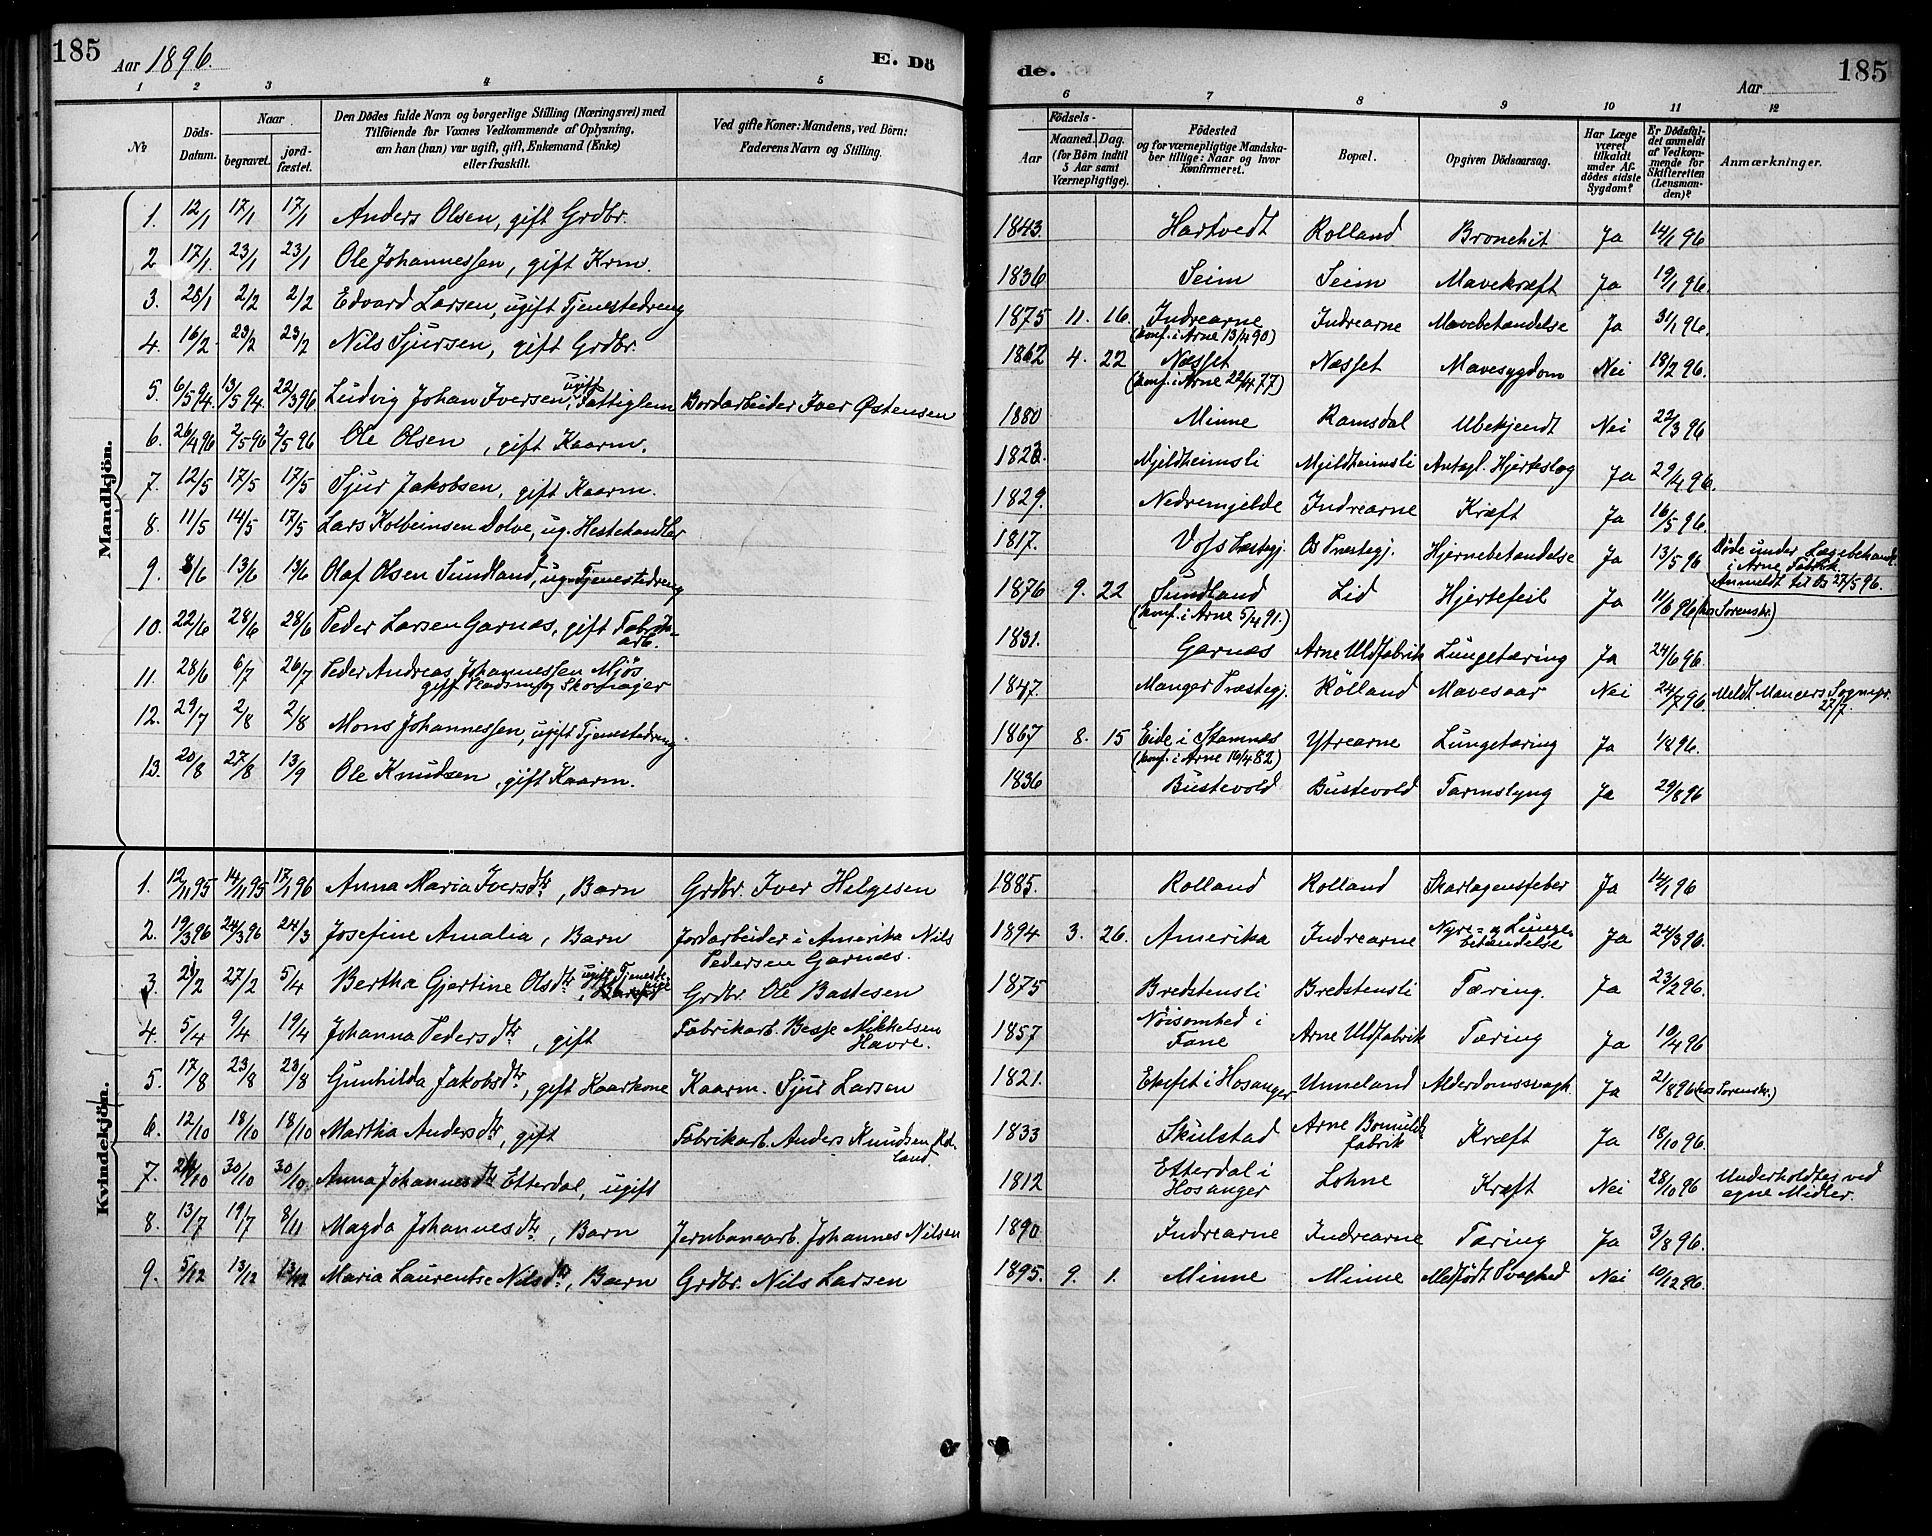 185
Aar 1896.
E. Dö
1 2 3 4 5
No
Döds-Datum.
Naar
begravet.
jordfæstet.
Den Dödes fulde Navn og borgerlige Stilling (Næringsvei) med
Tilföiende for Voxnes Vedkommende af Oplysning,
om han (hun) var ugift, gift, Enkemand (Enke)
eller fraskilt.
Ved gifte Koner: Mandens, ved Börn:
Faderens Navn og Stilling.
Mandkjön.
1. 12/1 17/1 17/1 Anders Olsen, gift Grdbr.
2 17/1. 23/1 23/1 Ole Johannessen, gift Krm.
3. 28/1 2/2 2/2 Edvard Larsen, ugift Tjenestedreng
4. 16/2. 23/2 23/2 Nils Sjursen, gift Grdbr.
5. 6/5 94. 13/5 94. 22/3 96 Ludvig Johan Iversen, ugift Fattiglem Bordarbeider Iver Østensen
6. 26/4 96 2/5 96 2/5 96 Ole Olsen, gift Kaarm.
7. 12/5 17/5 17/5 Sjur Jakobsen, gift Kaarm.
8. 11/5 14/5 17/5 Lars Kolbeinsen Dolve, ug. Hestehandler
9. 8/6 13/6 13/6 Olaf Olsen Sundland, ug. Tjenestedreng
10. 22/6 28/6 28/6 Peder Larsen Garnæs, gift Fabrik-
arb.
11. 28/6 6/7 26/7 Peder Andreas Johannessen Mjøs
gift Pladsm. og Skomager
12. 29/7 2/8 2/8 Mons Johannessen, ugift Tjenestedreng
13. 20/8 27/8 13/9 Ole Knudsen, gift Kaarm.
Kvindekjön.
1. 12/11 95 14/11 95 17/1 96 Anna Maria Iversdtr, Barn Grdbr. Iver Helgesen
2. 19/3 96 24/3 96 24/3 Josefine Amalia, Barn Jordarbeider i Amerika Nils
Pedersen Garnæs.
3. 21/2 27/2 5/4 Bertha Gjertine Olsdtr ugift Tjeneste-pige Grdbr. Ole Bastesen
4. 5/4 9/4 19/4 Johanna Pedersdtr, gift Fabrikarb. Besse Mikkelsen
Havre.
5. 17/8 23/8 23/8 Gunhilda Jakobsdtr, gift Kaarkone Kaarm. Sjur Larsen
6. 12/10 18/10 18/10 Martha Andersdtr, gift Fabrikarb. Anders Knudsen Rol-
land.
7. 24/10 30/10 30/10 Anna Johannesdtr Etterdal, ugift
8. 13/7 19/7 8/11 Magda Johannesdtr, Barn Jernbanearb. Johannes Nilsen
9. 5/12 13/12 13/12 Maria Laurentse Nilsdtr, Barn Grdbr. Nils Larsen
de.
185
Aar
6 7 8 9 10 11 12
Födsels-
Aar
Maaned. Dag.
(for Börn indtil
5 Aar samt
Værnepligtige).
Födested
og for værnepligtige Mandska-
ber tillige: Naar og hvor
konfirmeret.
Bopæl.
Opgiven Dödsaarsag.
Har Læge
været
tilkaldt
under Af-
dödes sidste
Sygdom?
Er Dödsfal-
det anmeldt
af Vedkom-
mende for
Skifteretten
(Lensman-
den)?
Anmærkninger.
1843. Hartvedt Rolland Bronchit Ja 14/1 96
1836 Seim Seim Mavekræft Ja 19/1 96.
1875 11. 16. Indrearne Indrearne Mavebetændelse Ja 31/1 96.
(konf. i Arne 13/4 90)
1862 4. 22 Næsset Næsset Mavesygdom Nei 18/2 96.
(konf. i Arne 22/4 77)
1880 Minne Ramsdal Ubekjendt Nei 22/3 96
1823. Mjeldheimsli Mjeldheimsli Antagl. Hjerteslag Ja 29/4 96.
1829. Nedremjelde Indrearne Kræft Ja 16/5 96.
1817. Voss Præstegj. Os Præstegj. Hjernebetændelse Ja 13/5 96 Døde under Lægebehandl.
i Arne Fabrik.
Anmeldt til Os 27/5 96.
1876 9. 22 Sundland Lid Hjertefeil Ja 11/6 96 (hos Sorenskr.)
(konf. i Arne 5/4 91.)
1831. Garnæs Arne Uldfabrik Lungetæring Ja 24/6 96.
1847. Manger Præstegj. Rolland Mavesaar Nei 24/7 96. Meldt Mangers Sognepr.
27/7.
1867 8. 15 Eide i Stamnæs Ytrearne Lungetæring Ja 1/8 96.
(konf. i Arne 16/4 82)
1836 Bustevold Bustevold Tarmslyng Ja 29/8 96
1885. Rolland Rolland Skarlagensfeber Ja 14/1 96
1894 3. 26. Amerika Indrearne Nyre- og Lunge-
betændelse Ja 24/3 96.
1875 Bredstensli Bredstensli Tæring. Ja 23/2 96.
1857 Nøisomhed i
Fane Arne Uldfabrik Tæring Ja 10/4 96
1821. Eknset i Hosanger Unneland Alderdomssvagh. Ja 21/8 96 (hos Sorenskr.)
1833 Skulstad Arne Bomulds-
fabrik Kræft Ja 18/10 96.
1812 Etterdal i
Hosanger Lohne Kræft Nei 28/10 96 Underholdtes ved
egne Midler.
1890 Indrearne Indrearne Tæring Ja 3/8 96.
1895. 9. 1. Minne Minne Medfödt Svaghed Nei 10/12 96.